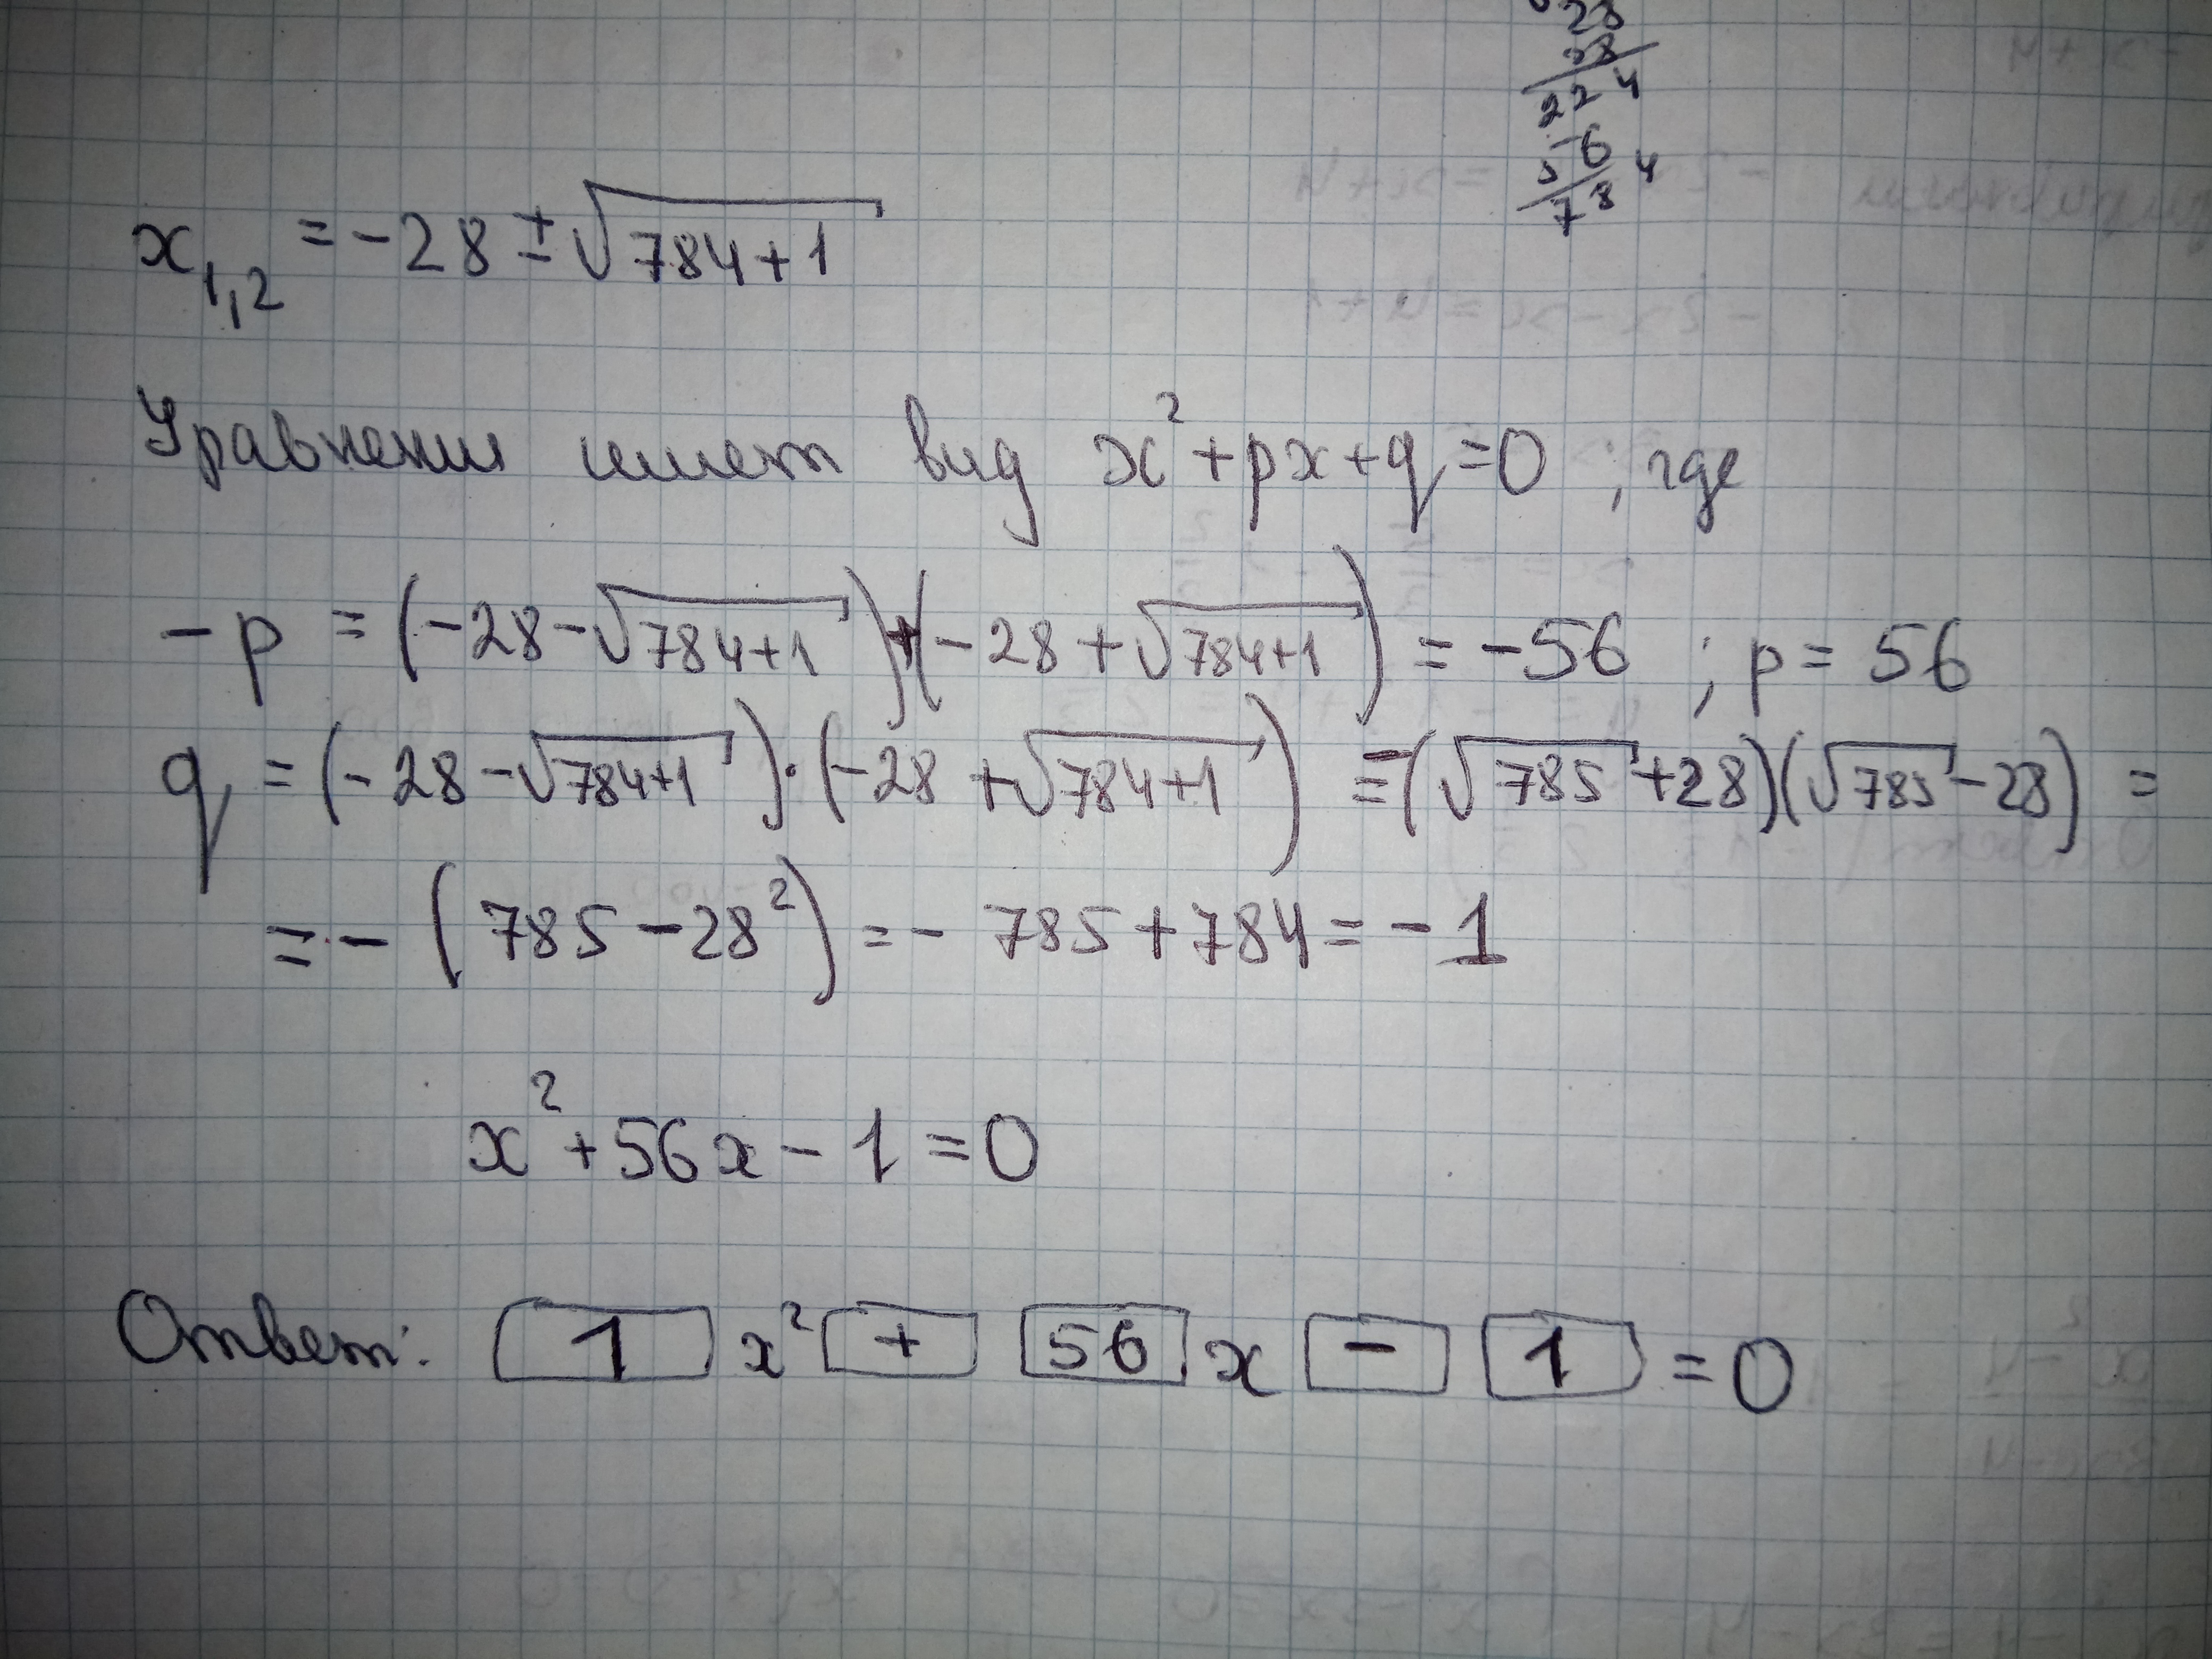 28
28
224
56
784
x₁,₂ = -28 ± √(784+1)
Уравнение имеет вид x² + px + q = 0 ; где
-p = (-28 - √(784+1)) + (-28 + √(784+1)) = -56 ; p = 56
q = (-28 - √(784+1)) · (-28 + √(784+1)) = -(√785 + 28)(√785 - 28) =
= - (785 - 28²) = - 785 + 784 = - 1
x² + 56x - 1 = 0
Ответ: 1 x² + 56 x - 1 = 0